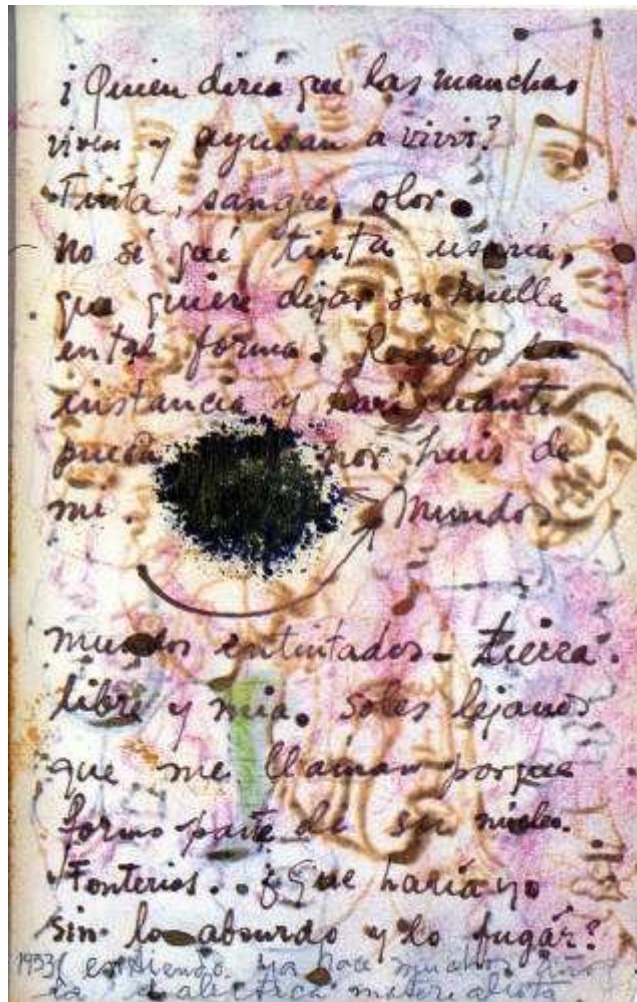 ¿Quien diria que las manchas
viven y ayudan a vivir?
Tinta, sangre, olor.
No sé qué tinta usaria,
que quiere dejar su huella
en tal forma. Respeto su
instancia y haré cuanto
pueda por huir de
mi. Mundos
mundos entintados - tierra
libre y mia. Soles lejanos
que me llaman porque
formo parte de su nucleo.
Tonterias.. ¿Que haría yo
sin lo absurdo y lo fugáz?
1953 entiendo ya hace muchos años
la dialectica materialista